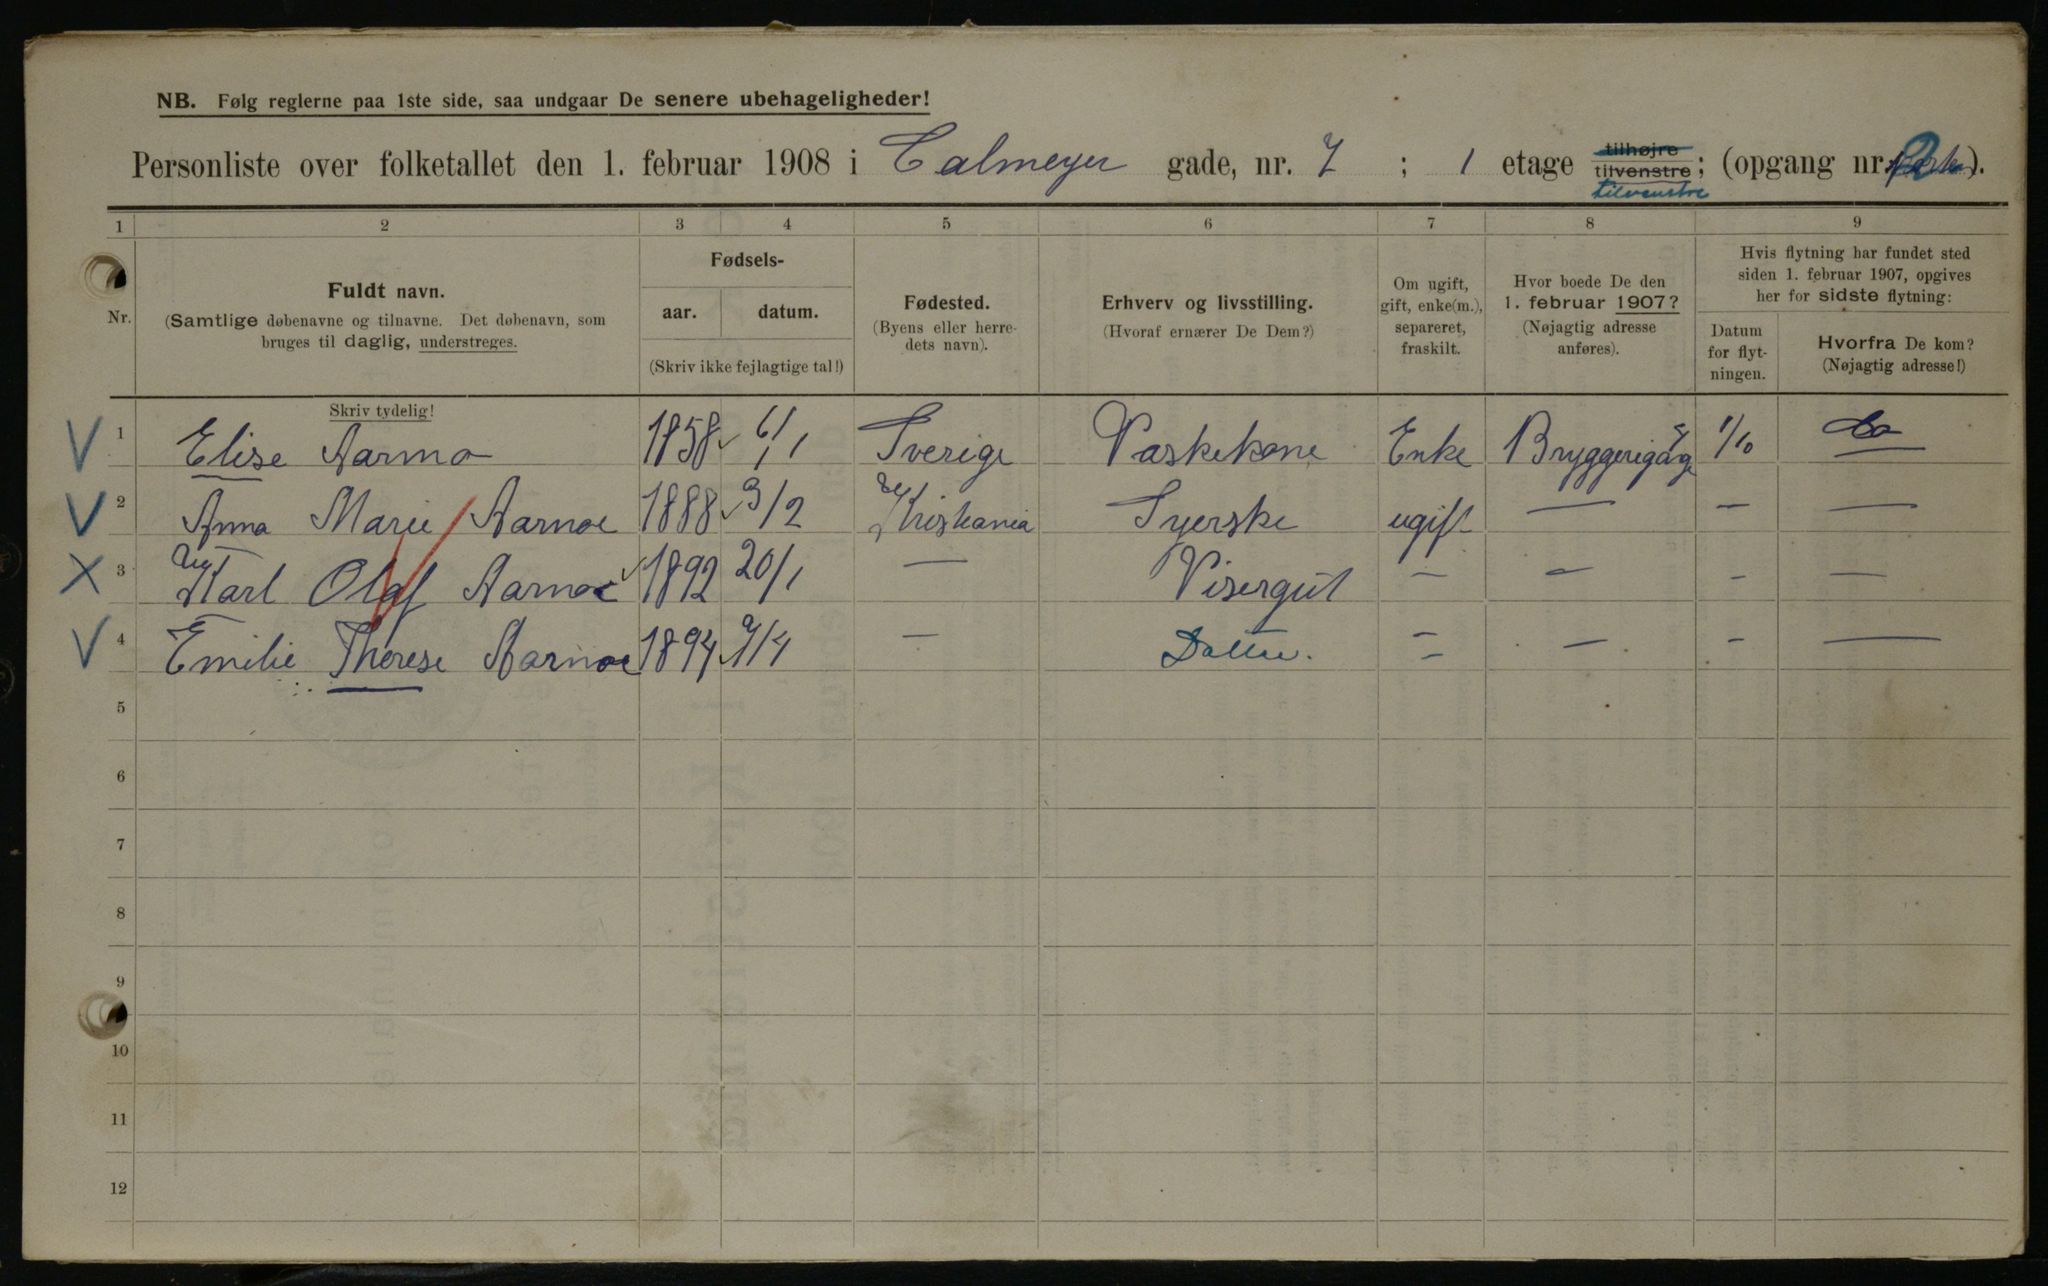 NB. Følg reglerne paa 1ste side, saa undgaar De senere ubehageligheder!
Personliste over folketallet den 1. februar 1908 i Calmeyer gade, nr. 7 ; 1 etage tilhøjre tilvenstre; (opgang nr. 2).
tilvenstre
1 2 3 4 5 6 7 8 9
Nr. Fuldt navn.
(Samtlige døbenavne og tilnavne. Det døbenavn, som
bruges til daglig, understreges.
Fødsels-
aar. datum.
(Skriv ikke fejlagtige tal!)
Fødested.
(Byens eller herre-
dets navn).
Erhverv og livsstilling.
(Hvoraf ernærer De Dem?)
Om ugift,
gift, enke(m.),
separeret,
fraskilt.
Hvor boede De den
1. februar 1907?
(Nøjagtig adresse
anføres).
Hvis flytning har fundet sted
siden 1. februar 1907, opgives
her for sidste flytning:
Datum
for flyt-
ningen.
Hvorfra De kom?
(Nøjagtig adresse!)
Skriv tydelig!
V 1 Elise Aarno 1858 6/1 Sverige Vaskekone Enke Bryggerigåge 1/10 Do
V 2 Anna Marie Aarnoe 1888 3/2 Kristiania Syerske ugift — — —
X 3 Karl Olaf Aarnoe 1892 20/1 — Visergut — — — —
V 4 Emilie Therese Aarnoe 1894 7/4 — Datter. — — — —
5
6
7
8
9
10
11
12